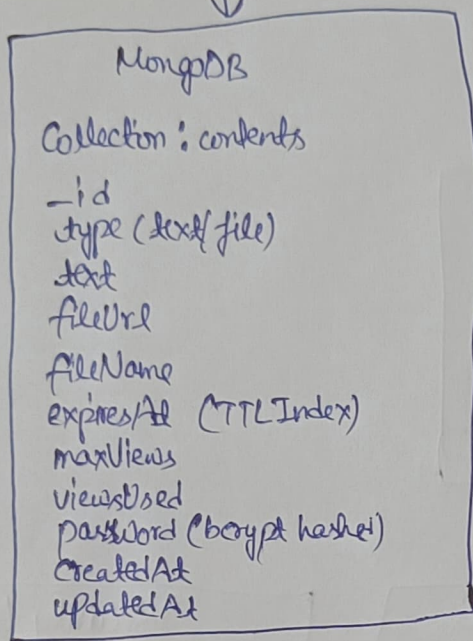 MongoDB
Collection : contents
_id
type (text/file)
text
fileUrl
fileName
expiresAt (TTL Index)
maxViews
viewsUsed
password (bcrypt hashed)
createdAt
updatedAt